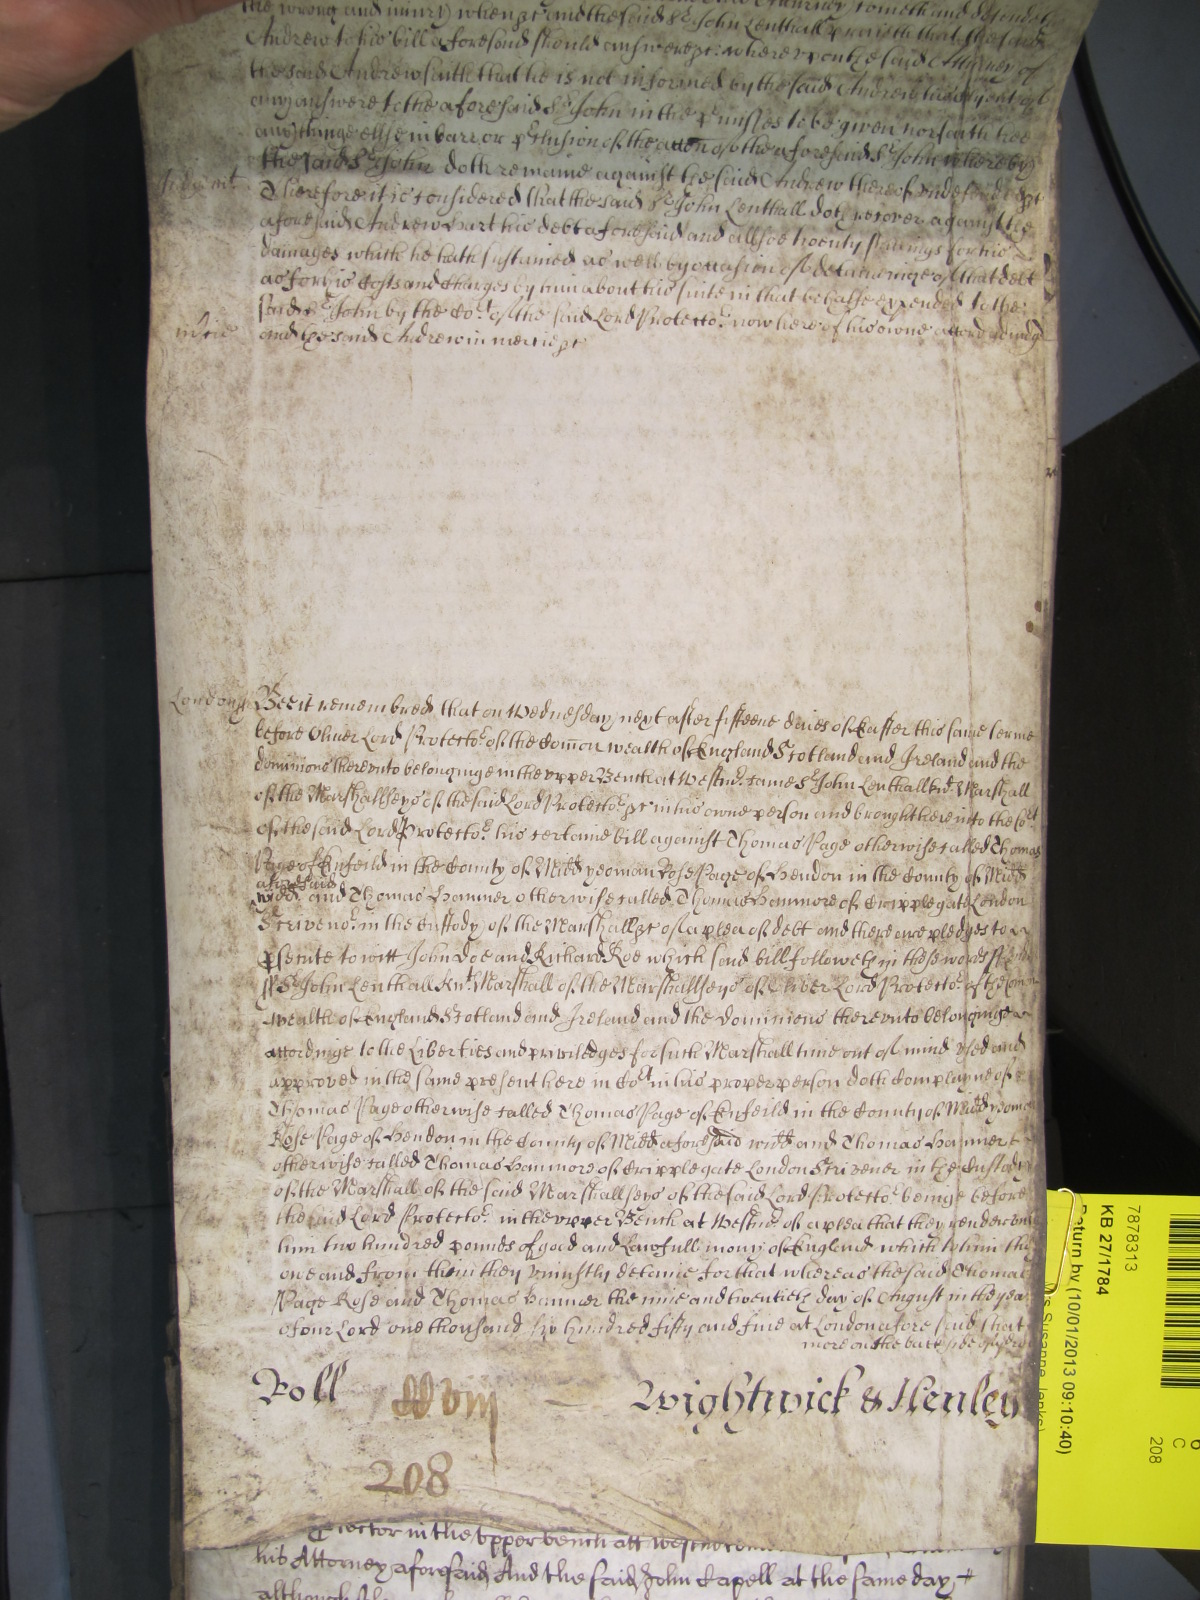 the wrong and iniury when &c and the said Sr John Lenthall prayeth that the said
Andrew to his bill aforesaid should answere &c: where vpon the said Attorney of
the said Andrew saith that he is not informed by the said Andrew
any answere to the aforesaid Sr John in the p'misses to be given nor saith hee
any thinge else in barr or p'clusion of the accon of the aforesaid Sr John whereby
the said Sr John doth remaine against the said Andrew thereof vndefended &c
Judgmt
Therefore it is considered that the said Sr John Lenthall doth recover against the
aforesaid Andrew his debt aforesaid and allsoe twenty shillings for his
damages which he hath sustained as well by occasion of detaininge of that debt
as for his Costs and Charges by him about his suite in that behalfe expended to the
said Sr John by the Cort of the said Lord Protector now here of his owne accord adiudged
mcie
and the said Andrew in mercie &c
London ss
Bee it remembred that on Wednesday next after fifteene daies of Easter this same terme
before Oliver Lord Protector of the Common wealth of England Scotland and Ireland and the
dominions therevnto belonginge in the vpper Bench at Westmr. came Sr John Lenthall knt. Marshall
of the Marshallseys of the said Lord Protector &c in his owne person and brought here into the Cort
of the said Lord Protector his certaine bill against Thomas Page otherwise called Thomas
Page of Enfeild in the County of Midd yeoman Rose Page of Hendon in the County of Midd
aforesaid
widd and Thomas Hanmer otherwise called Thomas Hanmore of Cripplegate London
Scrivenor in the Custody of the Marshall &c of a plea of debt and there are pledges to
p'secute to witt John Doe and Richard Roe which said bill followeth in these words ss London
ss Sr John Lenthall Knt. Marshall of the Marshallseys of Oliver Lord Protector of the Common
wealth of England Scotland and Ireland and the dominions therevnto belonginge
accordinge to the Liberties and priviledges for such Marshall time out of mind vsed and
approved in the same present here in Cort in his proper person doth Complayne of
Thomas Page otherwise called Thomas Page of Enfeild in the County of Midd yeoman
Rose Page of Hendon in the County of Midd aforesaid widd and Thomas Hanmer
otherwise called Thomas Hanmore of Cripplegate London Scrivener in the Custody
of the Marshall of the said Marshallseys of the said Lord Protector beinge before
the said Lord Protector in the vpper Bench at Westmr of a plea that they render vnto
him two hundred pounds of good and Lawfull mony of England which to him they
owe and from him they vniustly detaine for that whereas the said Thomas
Page Rose and Thomas Hanmer the nine and twentieth day of August in the year
of our Lord one thousand six hundred fifty and five at London aforesaid that
more on the back side
Roll
Wightwick & Henley
208
Protector in the vpper bench att
his Attorney aforesaid And the said John Capell at the same day
7878313
KB 27/1784
Return by (10/01/2013 09:10:40)
6
C
208